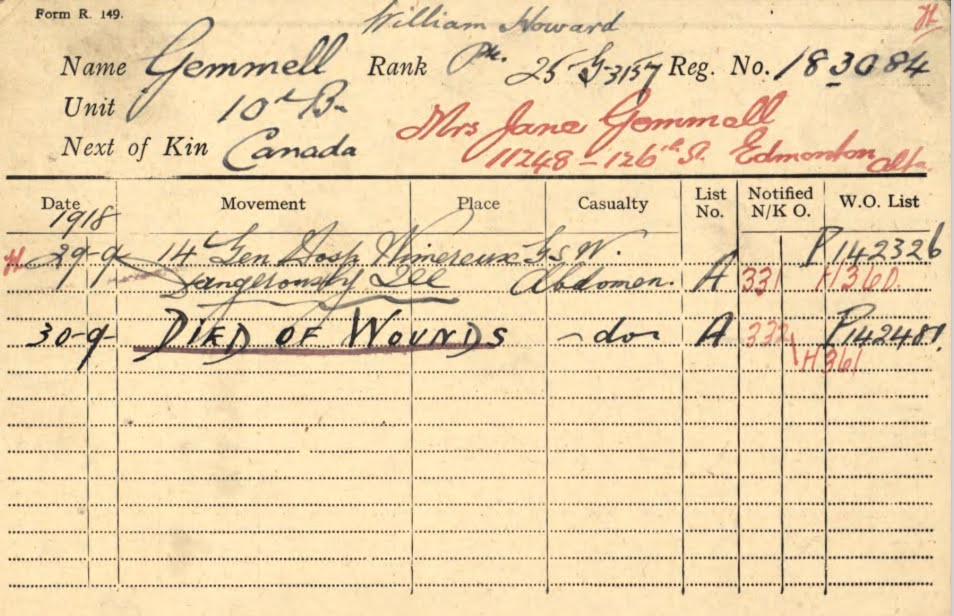 Form R. 149.
William Howard
H
Name Gemmell Rank Pte. 25-G-3157 Reg. No. 183084
Unit 10th Bn
Mrs Jane Gemmell
Next of Kin Canada
11248 - 126th St. Edmonton Alta.
Date Movement Place Casualty List No. Notified N/K O. W.O. List
1918
H 29-9- 14 Gen Hosp Wimereux G.S.W. P142326
Dangerously Ill Abdomen. A 331 H360.
30-9- DIED OF WOUNDS - do - A 332 P142481.
H361